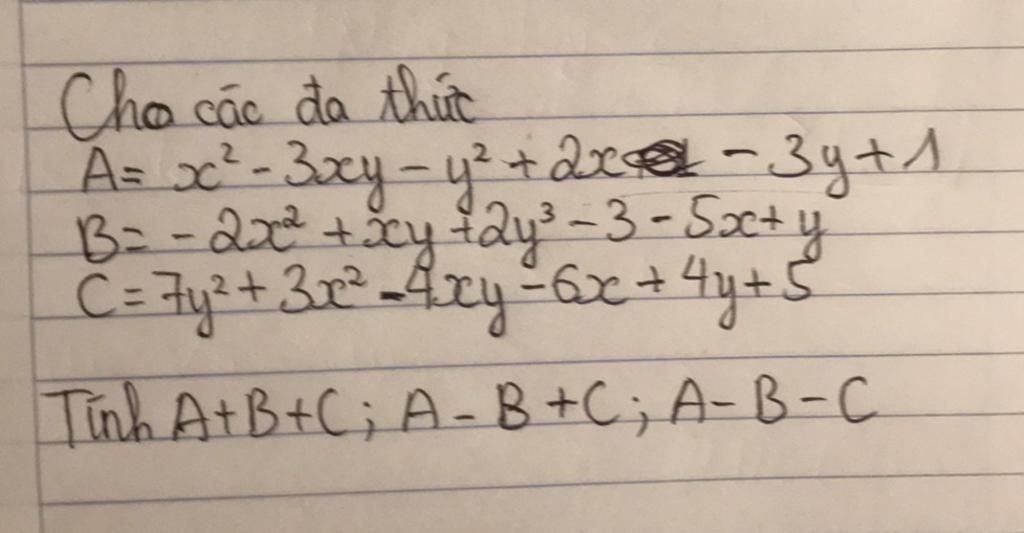 Cho các đa thức
A = x² - 3xy - y² + 2x - 3y + 1
B = - 2x² + xy + 2y³ - 3 - 5x + y
C = 7y² + 3x² - 4xy - 6x + 4y + 5
Tính A + B + C ; A - B + C ; A - B - C